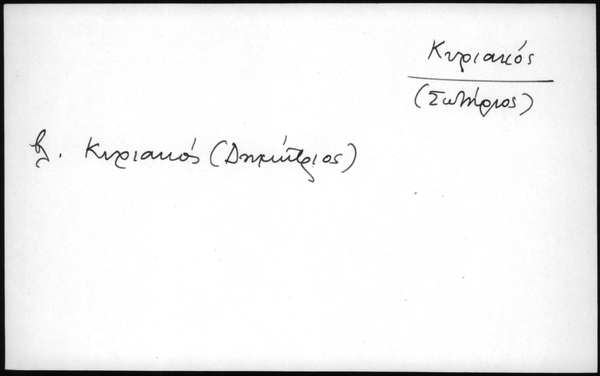 Κυριακός
(Σωτήριος)
βλ. Κυριακός (Δημήτριος)